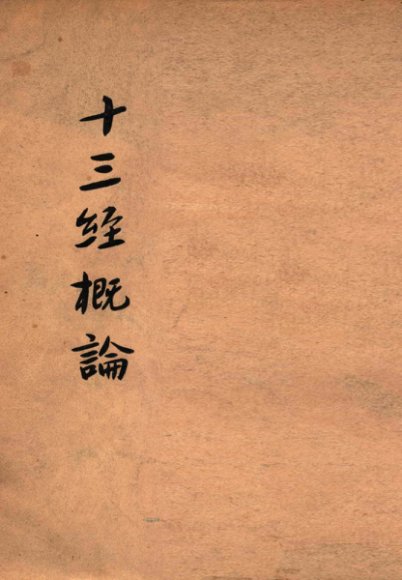 十三經概論